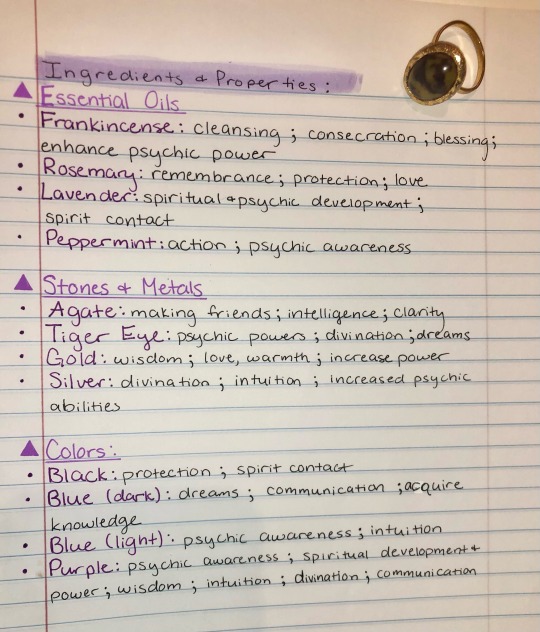 Ingredients & Properties:
▲ Essential Oils
• Frankincense: cleansing; consecration; blessing;
enhance psychic power
• Rosemary: remembrance; protection; love
• Lavender: spiritual & psychic development;
spirit contact
• Peppermint: action; psychic awareness
▲ Stones & Metals
• Agate: making friends; intelligence; clarity
• Tiger Eye: psychic powers; divination; dreams
• Gold: wisdom; love, warmth; increase power
• Silver: divination; intuition; increased psychic
abilities
▲ Colors:
• Black: protection; spirit contact
• Blue (dark): dreams; communication; acquire
knowledge
• Blue (light): psychic awareness; intuition
• Purple: psychic awareness; spiritual development &
power; wisdom; intuition; divination; communication